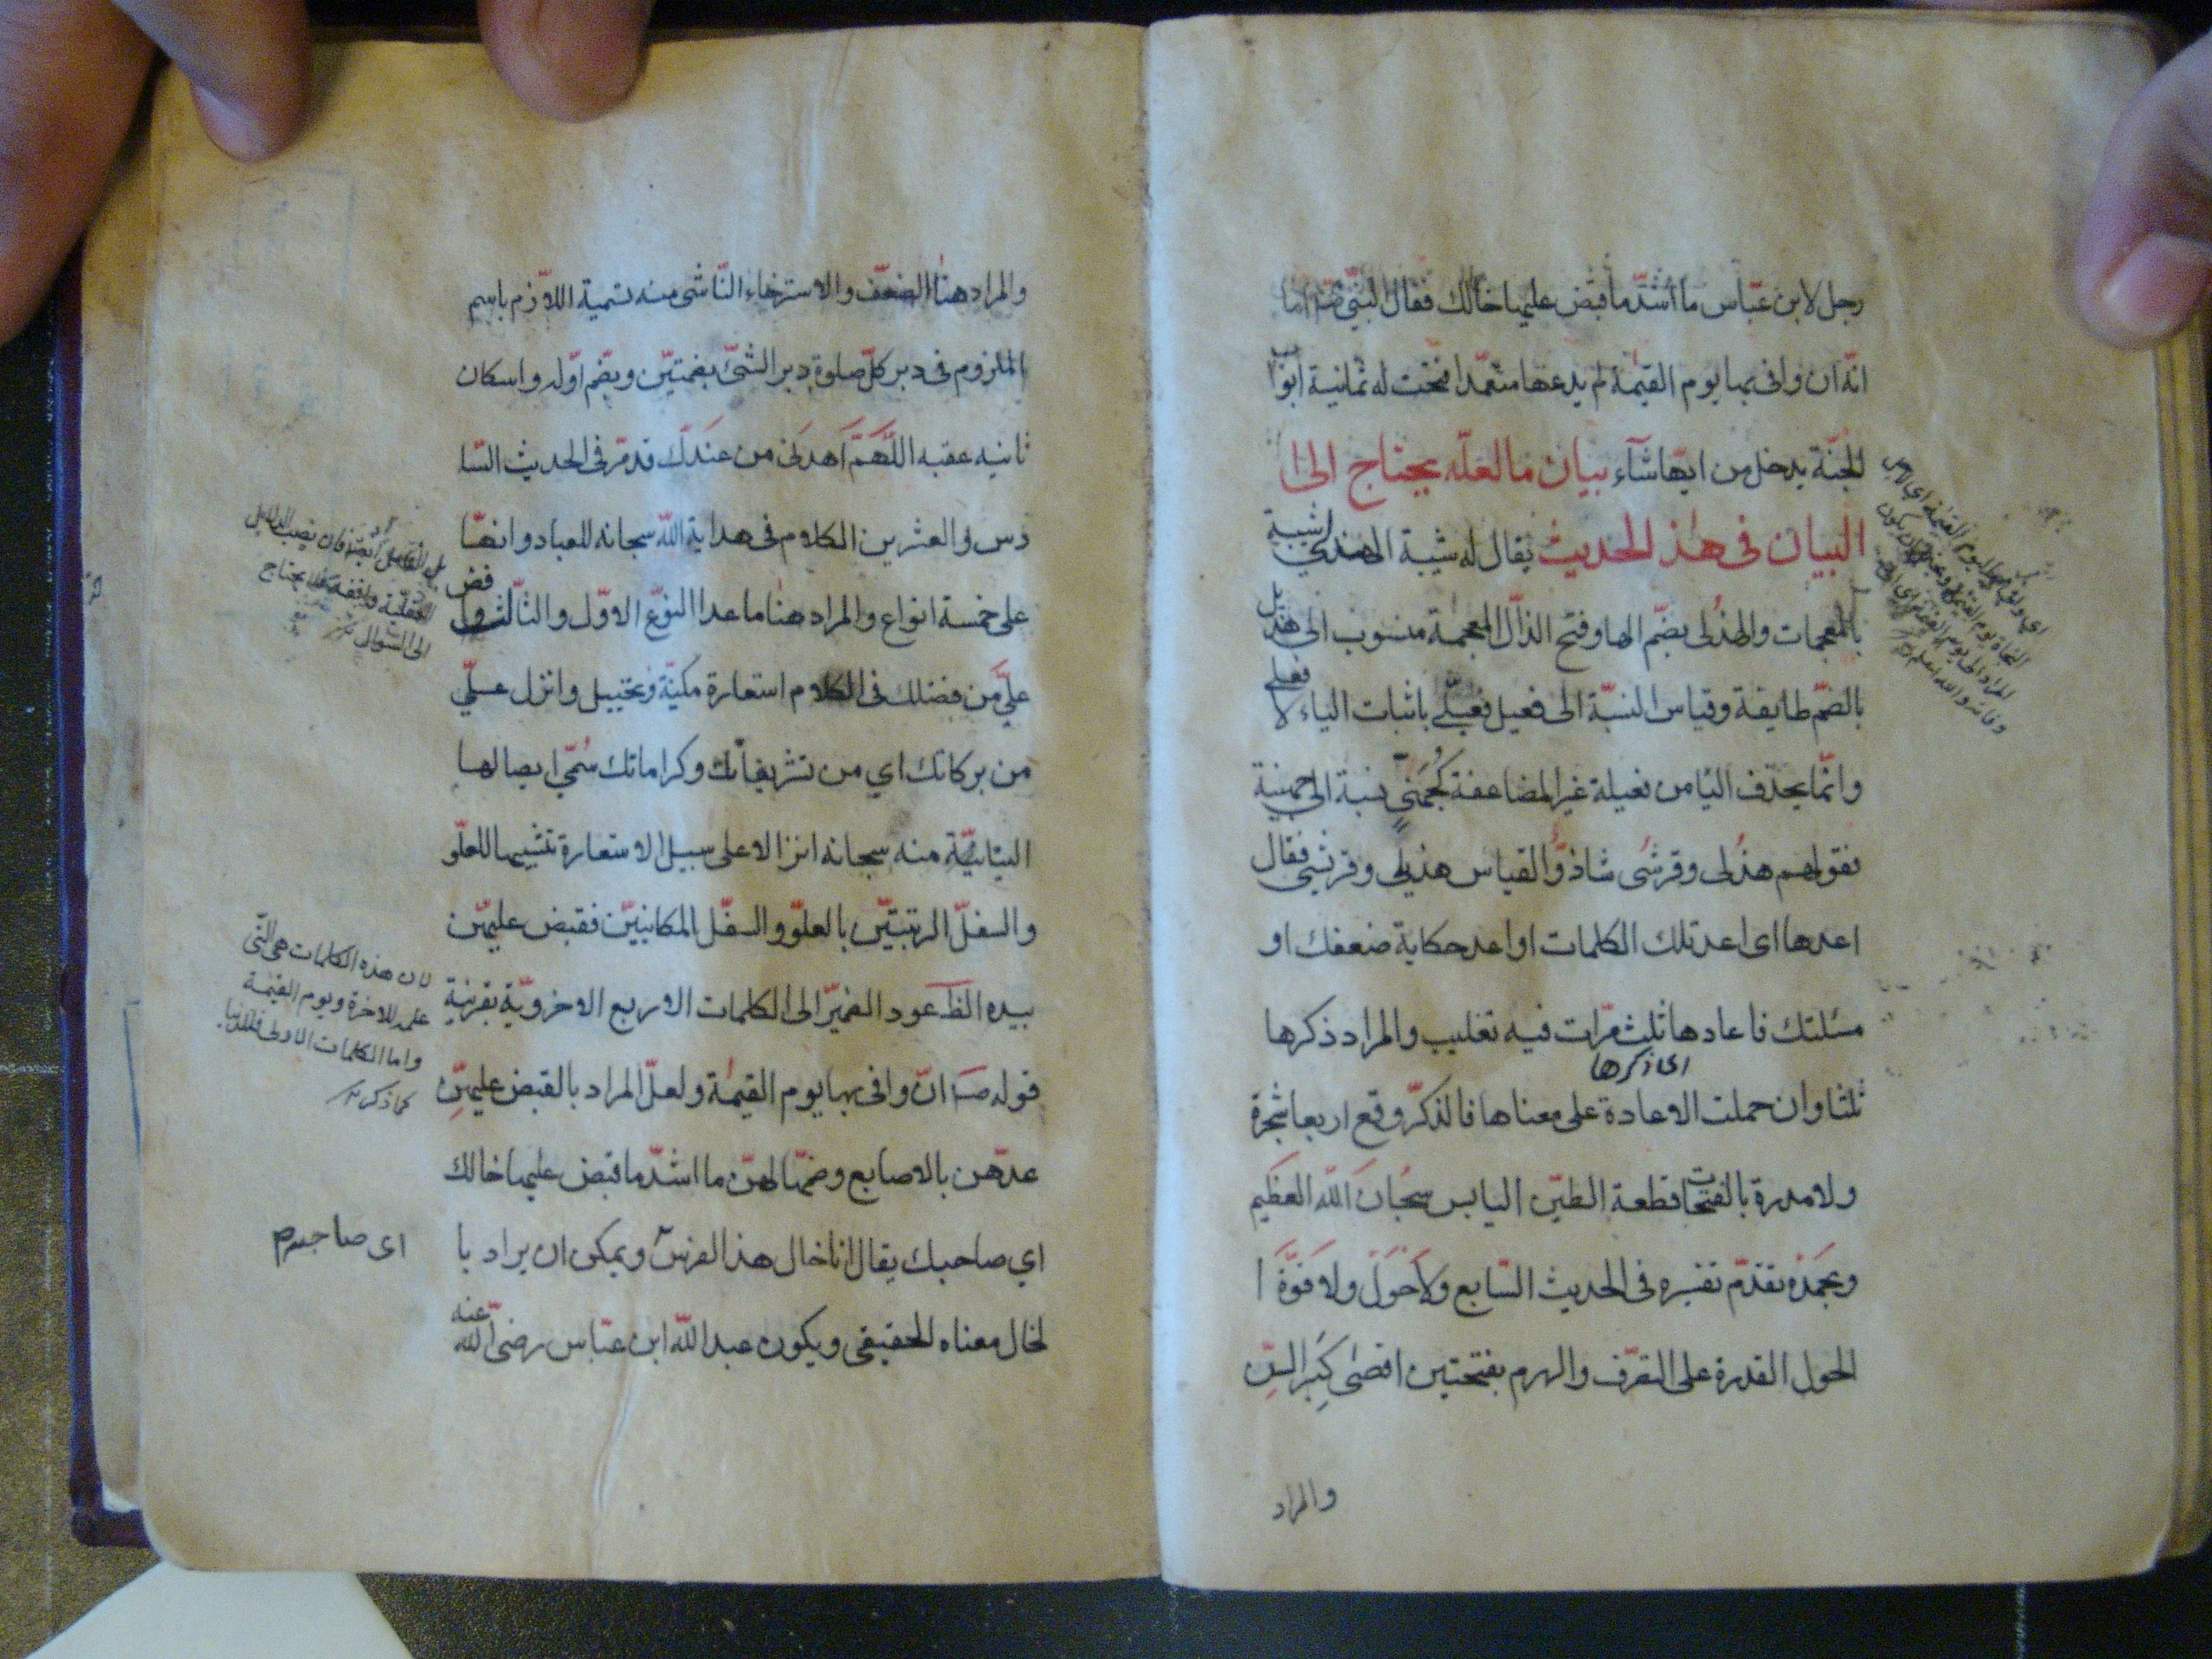 رجل لابن عبّاس ما اشدّ ما قبض عليها خالك فقال النبيّ صّ اما
انّه ان وافى بها يوم القيمة لم يدعها متعمّدا فتحت له ثمانية ابواب
الجنّة يدخل من ايّها شآء بيان ما لعلّه يحتاج الى ا
البيان فى هذ الحديث يقال له شيبة الهذلي لشيبة
بالمعجمات والهذلى بضمّ الها وفتح الذال المعجمة منسوب الى هذيل
بالضمّ طايفة وقياس النسبة الى فعيل فعيلّي باثبات الياء لا فعلي
وانّما يحذف اليا من فعيلة غير المضاعفة كجُهَنيّ نسبة الى جهينة
فقولهم هذلى وقرشى شاذ والقياس هذيلي وقريشي فقال
اعدها اى اعد تلك الكلمات او اعد حكاية ضعفك او
مسئلتك فاعادها ثلث مرّات فيه تغليب والمراد ذكرها
اى ذكرها
ثلثا وان حملت الاعادة على معناها فالذكر وقع اربعا شجرة
ولا مدرة بالفتحات قطعة الطين اليابس سبحان الله العظيم
وبحمده تقدّم تفسيره فى الحديث السّابع ولا حول ولا قوّة ا
الحول القدرة على التصرّف والهرم بفتحتين اقصى كِبَر السّن
والمراد
والمراد هنا الضعف والاسترخاء النّاشى منه تسمية اللازم باسم
الملزوم فى دبر كلّ صلوة دبر الشىّ بضمتين وبضم اوّله واسكان
ثانيه عقبه اللّهمّ اهدنى من عندك قد مرّ فى الحديث السّا
دس والعشرين الكلام فى هداية الله سبحانه للعباد وانها
على خمسة انواع والمراد هنا ما عدا النوع الاوّل والثالث وافض
عليّ من فضلك فى الكلام استعارة مكنيّة وتخييل وانزل عليّ
من بركاتك اي من تشريفاتك وكراماتك سُمّي ايصالها
منه سبحانه انزالا على سبيل الاستعارة تشبيها للعلّو
والسفل الرتبيّين بالعلوّ والسفل المكانيّين فقبض عليهن
بيده الظ عود الضمير الى الكلمات الاربع الاخرويّة بقرينة
قوله صّ ان وافى بها يوم القيمة ولعلّ المراد بالقبض عليهنّ
عدّهن بالاصابع وضمّها لهنّ ما اشدّ ما قبض عليها خالك
اي صاحبك يقال انا خال هذ الفرس ويمكن ان يراد با
لخال معناه الحقيقى ويكون عبد الله ابن عبّاس رضى الله عنه
الى السؤال
لان هذه الكلمات هى التى
علمه للاخرة ويوم القيمة
واما الكلمات الاولى فللدنيا
كما ذكر
اى صاحبهم